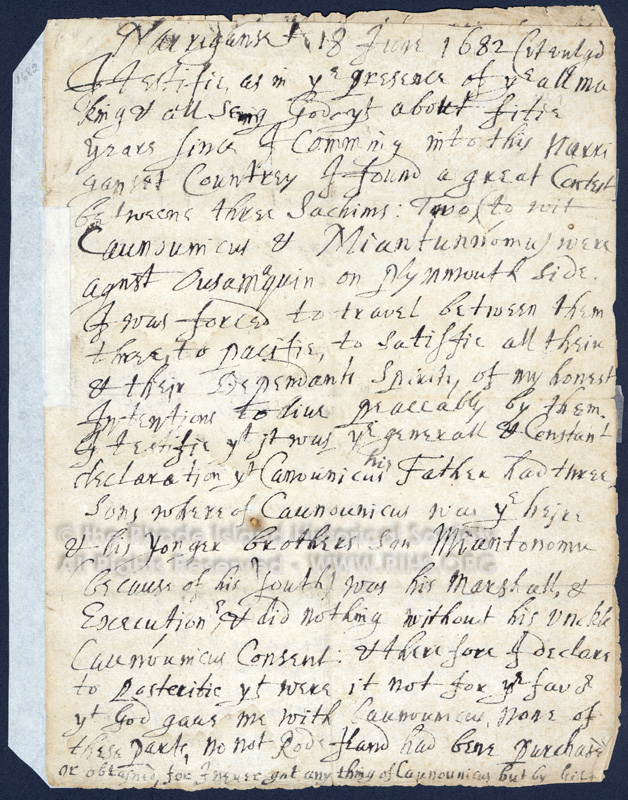 Narriganset 18 June 1682 (ut vulgo
I testifie, as in yᵉ presence of yᵉ all ma
king & all Seing God, yt about fiftie
yeare since I Comming into this Narri
ganset Countrey I found a great Contest
betweene three Sachims: Two (to wit
Caunounicus & Miantunnomu) were
agnst Ousamaquin on Plymmouth side.
I was forced to travel betweene them
three, to pacifie, to satisfie all their
& their Dependants Spirits, of my honest
Intentions to live peaceably by them.
I testifie yt it was yᵉ generall & Constant
declaration yt Canounicus his Father had three
Sons whereof Caunounicus was yᵉ heire
& his yonger brothers Son Miantonomu
(because of his Youth) was his Marshall, &
Executionʳ, & did nothing without his vnckle
Caunounicus Consent: & therefore I declare
to Posteritie yt were it not for yᵉ favʳ
yt God gave me with Caunounicus, None of
these parts, no not Rode Iland had bene purchasd
or obtained, for I never got any thing of Caunounicus but by Gift
© The Rhode Island Historical Society
All Rights Reserved - WWW.RIHS.ORG
1682